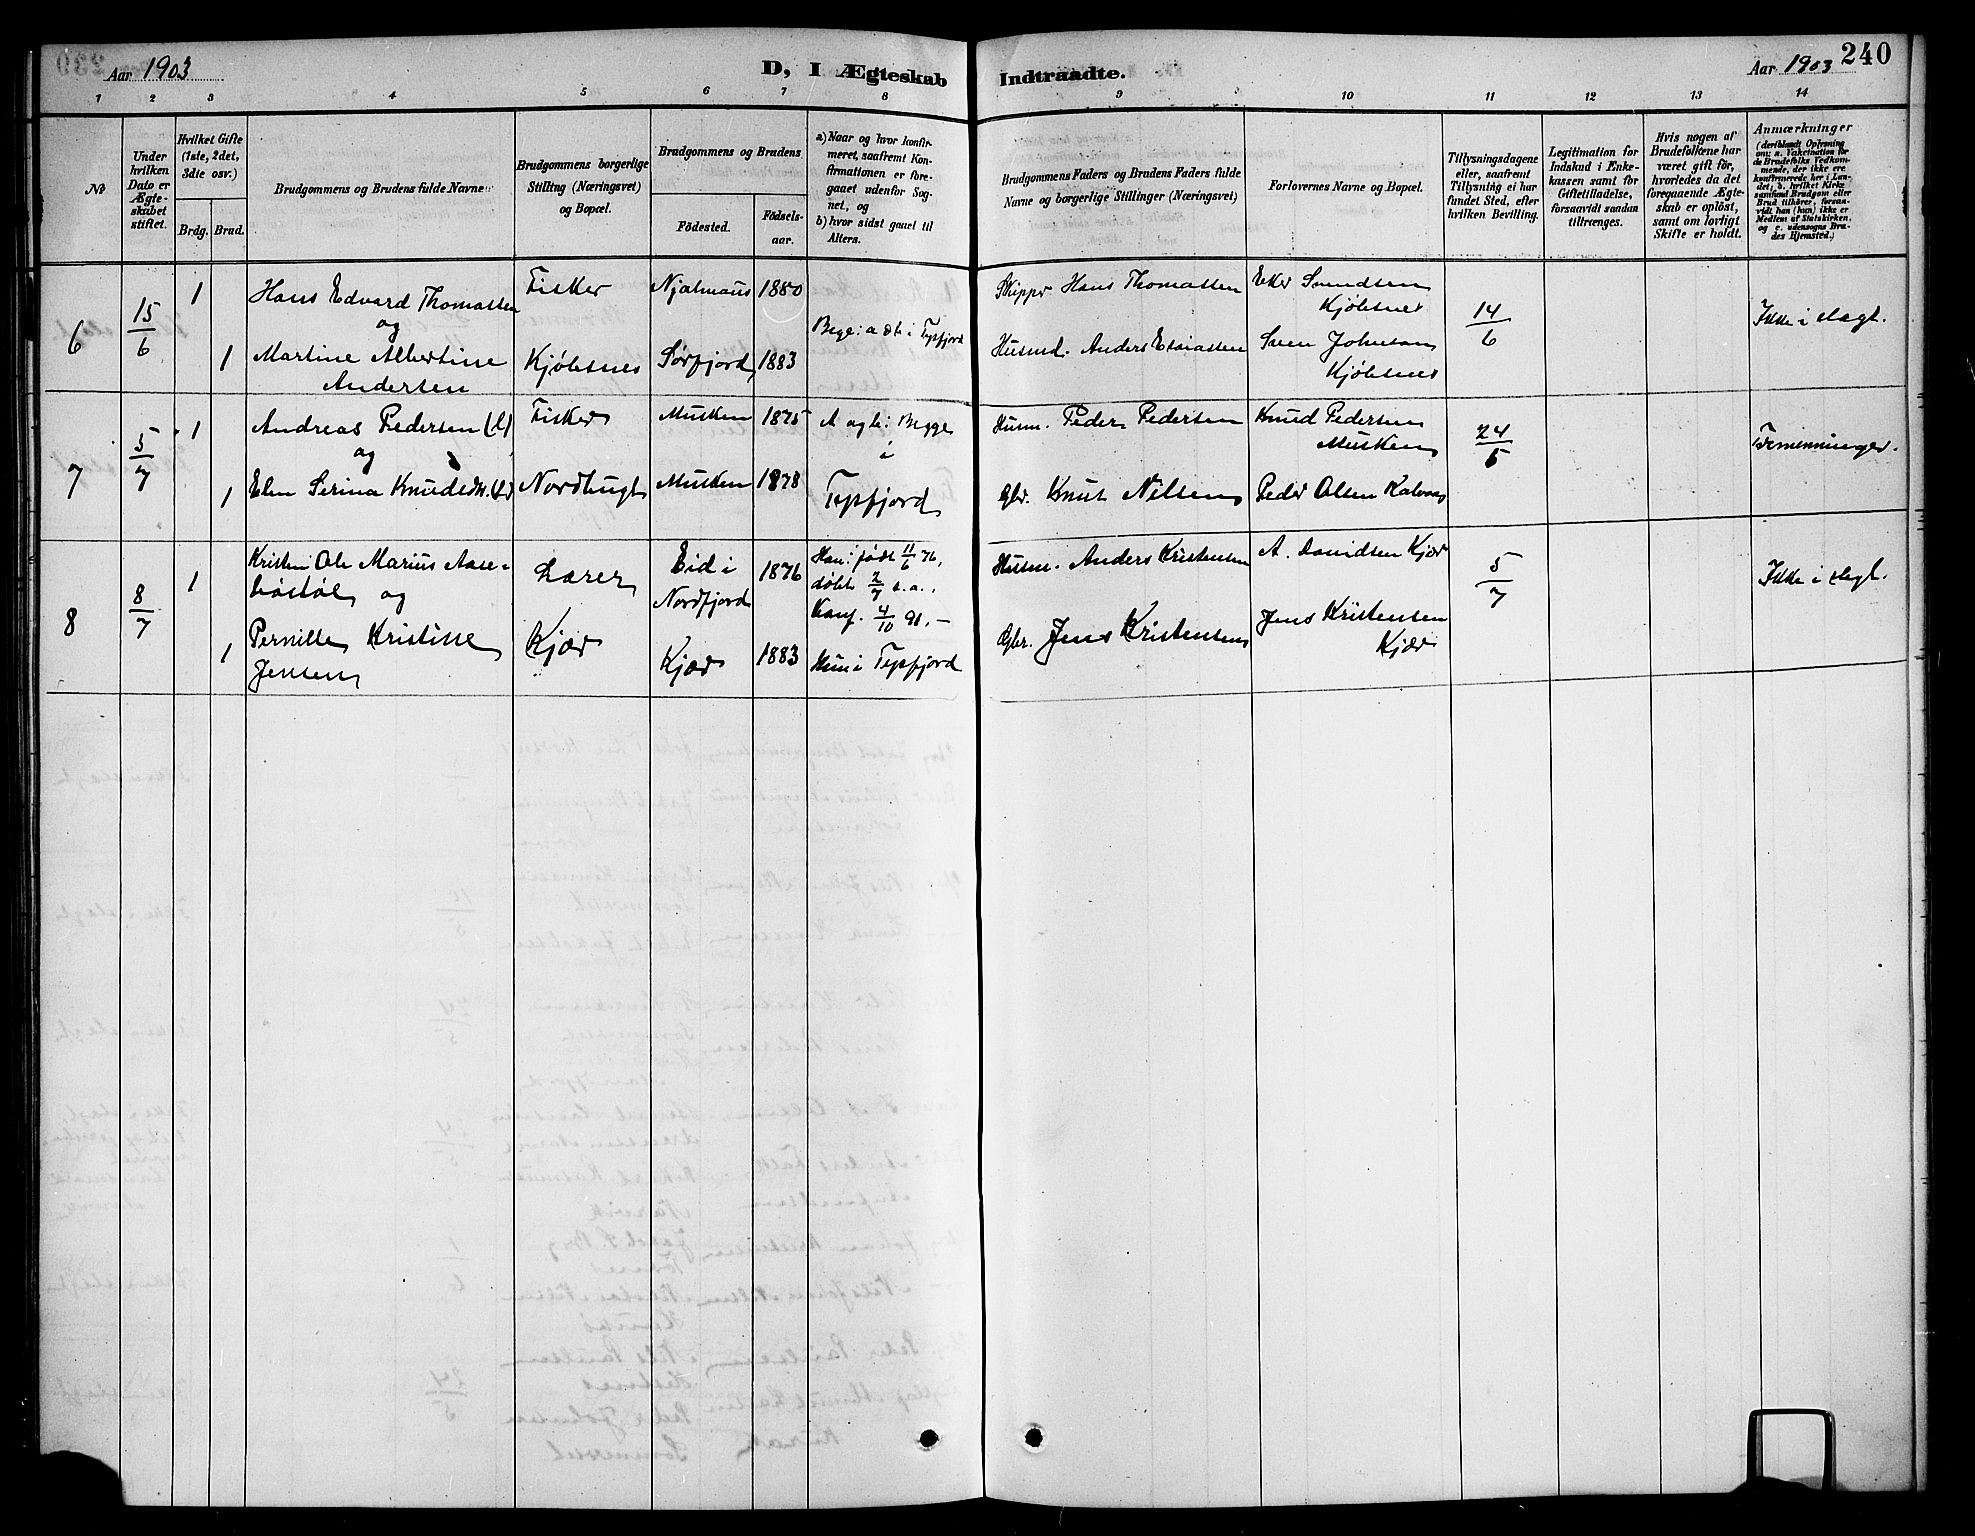 Aar 1903
D, I Ægteskab
Indtraadte.
Aar 1903
240
1 2 3 4 5 6 7 8 9 10 11 12 13 14
№
Under
hvilken
Dato er
Ægte-
skabet
stiftet.
Hvilket Gifte
(1ste, 2det,
3dte osv.)
Brdg.
Brud.
Brudgommens og Brudens fulde Navne
Brudgommens borgerlige
Stilling (Næringsvei)
og Bopæl.
Brudgommens og Brudens
Fødested.
Fødsels-
aar.
a) Naar og hvor konfir-
meret, saafremt Kon-
firmationen er fore-
gaaet udenfor Sog-
net, og
b) hvor sidst gaaet til
Alters.
Brudgommens Faders og Brudens Faders fulde
Navne og borgerlige Stillinger (Næringsvei)
Forlovernes Navne og Bopæl.
Tillysningsdagene
eller, saafremt
Tillysning ei har
fundet Sted, efter
hvilken Bevilling.
Legitimation for
Indskud i Enke-
kassen samt for
Giftetilladelse,
forsaavidt saadan
tiltrænges.
Hvis nogen af
Brudefolkene har
været gift før,
hvorledes da det
foregaaende Ægte-
skab er opløst,
samt om lovligt
Skifte er holdt.
Anmærkninger
(deriblandt Oplysning
om: a. Vakcination for
de Brudefolks Vedkom-
mende, der ikke ere
konfirmerede her i Lan-
det; b. hvilket Kirke
samfund Brudgom eller
Brud tilhører, forsaa-
vidt han (hun) ikke er
Medlem af Statskirken,
og c. udensogns Bru-
des Hjemsted.)
6
15/6
1
Hans Edvard Thomassen
Fisker
1880
Skippr. Hans Thomassen
Svendsen
Kjøbsnes
14/6
Ikke i slægt.
og
1
Martine Albertine
Andersen
Kjøbsnes
Sørfjord
1883
i Tysfjord
Husmd. Anders Esaiassen
Sven Johnsen
Kjøbsnes
7
5/7
1
Andreas Pedersen (l)
Fisker
Musken
1875
A og b: Begge
i
Tysfjord
Husm. Peder Pedersen
Knud Pedersen
Musken
24/5
Firmenninger.
og
1
Elen Serina Knudsdt. (l)
Nordbugt
Musken
1878
Gbr. Knut Nilsen
Peder Olsen
8
8/7
1
Kristen Ole Marius Aase-
bøstøl og
Lærer
Eid i
Nordfjord
1876
Han: født 11/6 76,
døbt 2/7 s.a.,
Konf. 4/10 91. -
Husm. Anders Kristensen
A. Davidsen Kjær
5/7
Ikke i slægt.
1
Pernille Kristine
Jensen
Kjær
Kjær
1883
Hun i Tysfjord
Gbr. Jens Kristensen
Jens Kristensen
Kjær